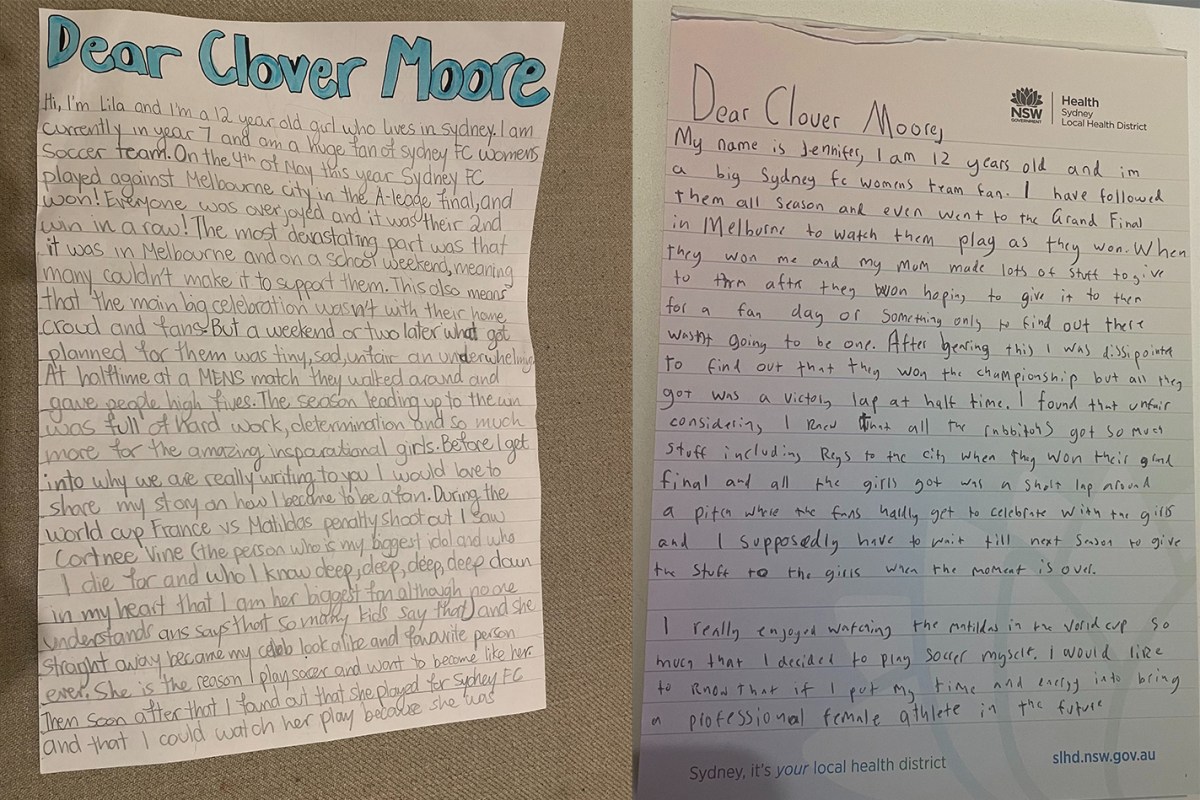 Dear Clover Moore
Hi, I'm Lila and I'm a 12 year old girl who lives in sydney. I am
currently in year 7 and am a huge fan of sydney FC womens
Soccer team. On the 4th of May this year Sydney FC
played against Melbourne city in the A-leage final, and
won! Everyone was overjoyed and it was their 2nd
win in a row! The most devastating part was that
it was in Melbourne and on a school weekend, meaning
many couldn't make it to support them. This also means
that the main big celebration wasn't with their home
croud and fans. But a weekend or two later what got
planned for them was tiny, sad, unfair an underwhelming
At halftime at a MENS match they walked around and
gave people high fives. The season leading up to the win
was full of hard work, determination and so much
more for the amazing inspurational girls. Before I get
into why we are really writing to you I would love to
share my story on how I became to be a fan. During the
world cup France vs Matildas penalty shoot out I saw
Cortnee Vine (the person who is my biggest idol and who
I die for and who I know deep, deep, deep, deep down
in my heart that I am her biggest fan although no one
understands ans says that so many kids say that) and she
straght away became my celeb look alike and favourite person
ever. She is the reason I play soccer and want to become like her.
Then soon after that I found out that she played for Sydney FC
and that I could watch her play because she was
Dear Clover Moore,
NSW
GOVERNMENT
Health
Sydney
Local Health District
My name is Jennifer, I am 12 years old and im
a big Sydney fc womens team fan. I have followed
them all season and even went to the Grand Final
in Melburne to watch them play as they won. When
they won me and my Mum made lots of stuff to give
to them aftre they won hoping to give it to then
for a fan day or something only to find out there
wasnt going to be one. After hearing this I was dissipointed
to find out that they won the championship but all they
got was a victory lap at half time. I found that unfair
considering I knew that all the rabbitohs got so much
stuff including keys to the city when they won their grand
final and all the girls got was a short lap around
a pitch where the fans hardly get to celebrate with the girls
and I supposedly have to wait till next season to give
the stuff to the girls when the moment is over.
I really enjoyed watching the matildas in the world cup so
much that I decided to play soccer myself. I would like
to know that if I put my time and energy into bring
a professional female athlete in the future
Sydney, it's your local health district
slhd.nsw.gov.au